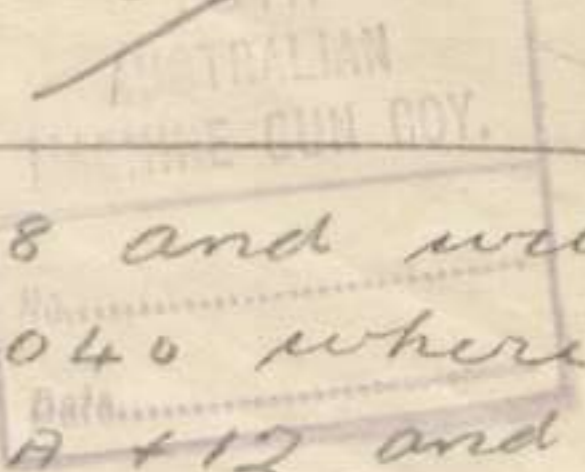 AUSTRALIAN
MACHINE GUN COY.
8 and
No.
040 where
Date
A + 12 and